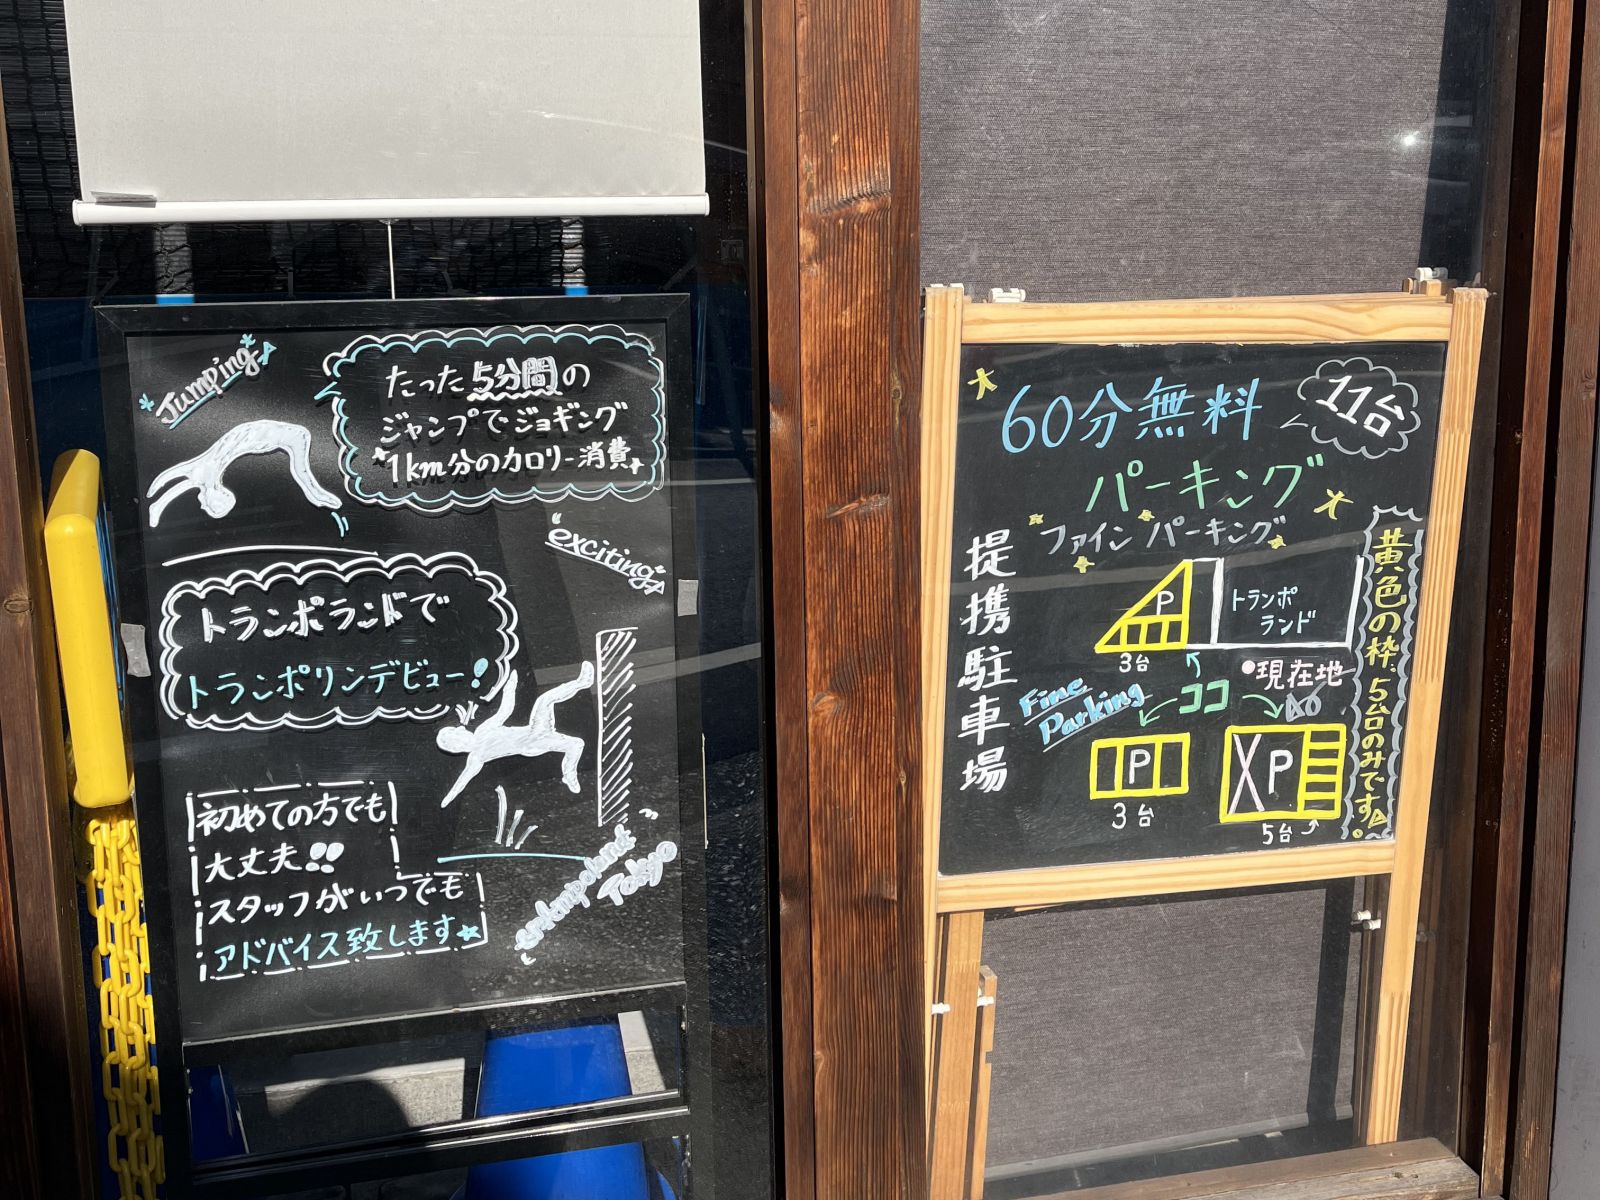 Jumping
たった5分間の
ジャンプでジョギング
1km分のカロリー消費
exciting
トランポランドで
トランポリンデビュー!
初めての方でも
大丈夫!!
スタッフがいつでも
アドバイス致します
trampoland
Tokyo
60分無料
11台
パーキング
ファインパーキング
提携駐車場
P
3台
トランポ
ランド
現在地
ココ
Fine
Parking
P
3台
XP
5台
黄色の枠、5台のみです。